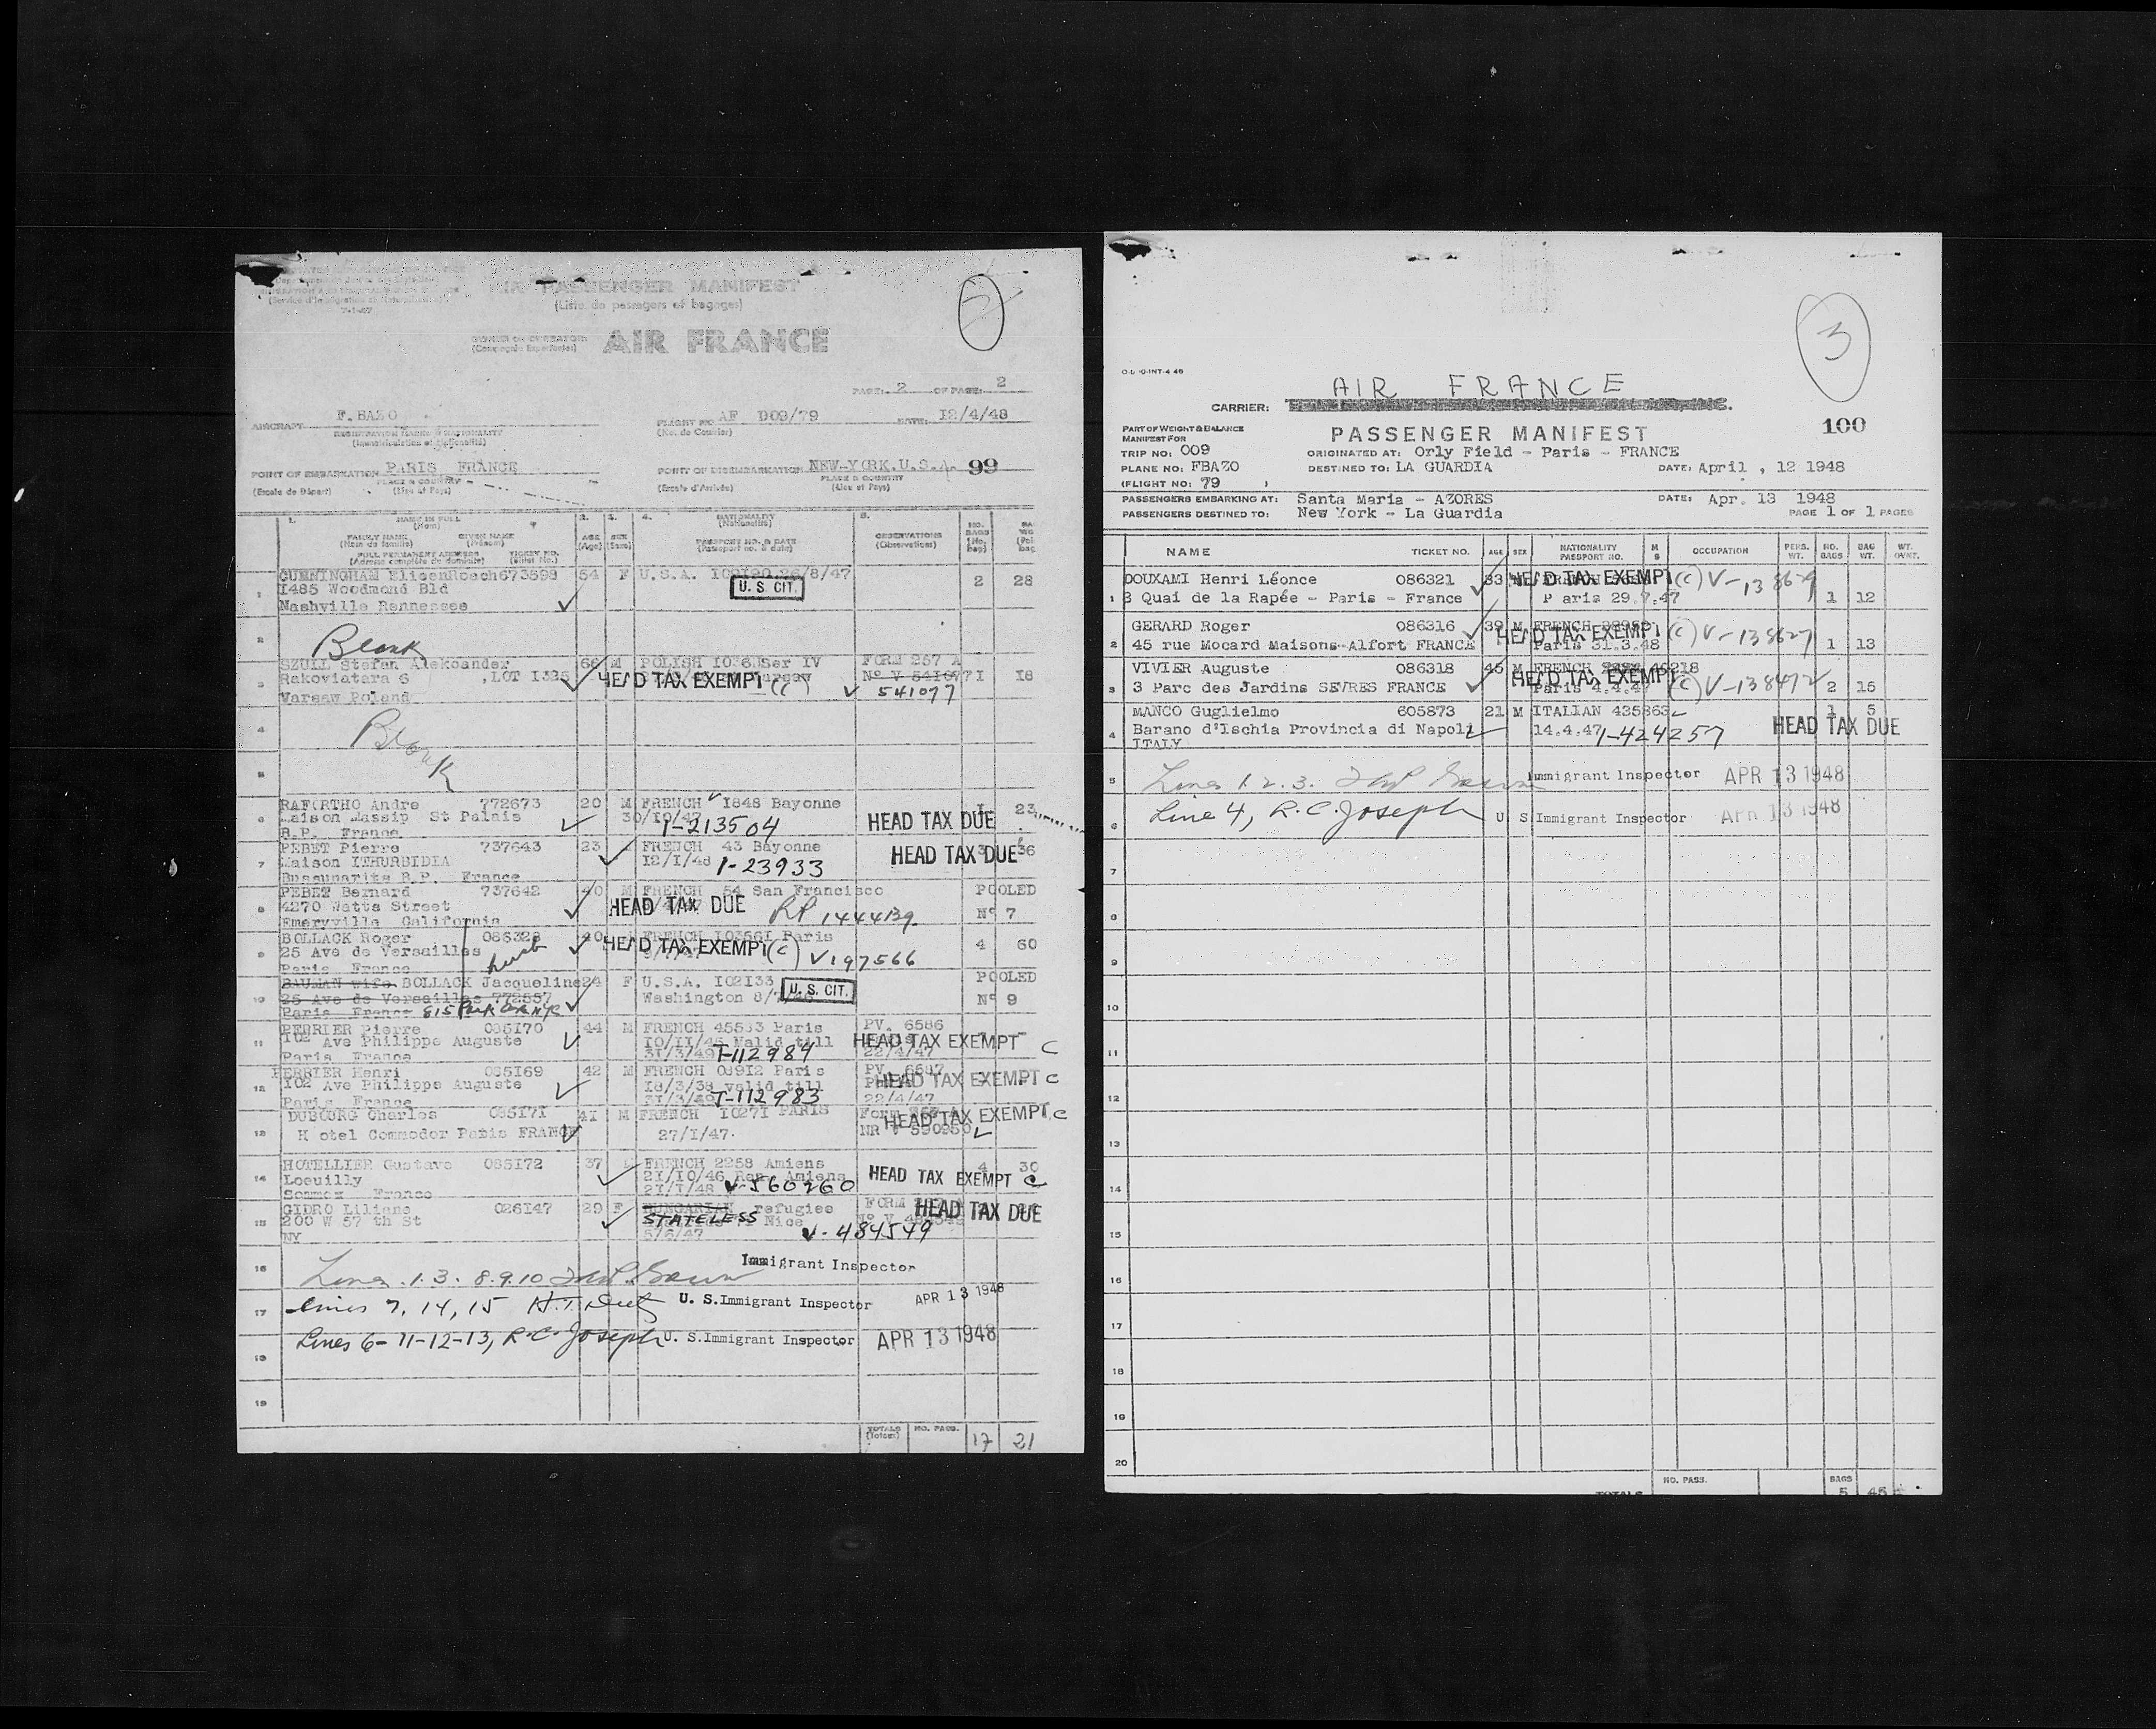 AIR PASSENGER MANIFEST
(Liste de passagers et bagages)
2
OWNER OR OPERATOR:
AIR FRANCE
PAGE: 2 OF PAGE: 2
AIRCRAFT F.BAZO
FLIGHT NO AF D09/79 DATE: I2/4/48
(No. de Courrier)
POINT OF EMBARKATION PARIS FRANCE
PLACE & COUNTRY
(Escale de Départ) (Lieu et Pays)
POINT OF DISEMBARKATION NEW-YORK.U.S.A. 99
PLACE & COUNTRY
(Escale d'Arrivée) (Lieu et Pays)
1. NAME IN FULL (Nom) 2. 3. 4. NATIONALITY (Nationalité) 5.
FAMILY NAME GIVEN NAME AGE SEX PASSPORT NO. & DATE OBSERVATIONS NO. BAGS
(Nom de famille) (Prénom) (Age) (Sexe) (Passeport no. & date) (Observations)
FULL PERMANENT ADDRESS TICKET NO.
(Adresse complète de domicile)
1 CUNNINGHAM ElisenRoach673598 54 F U.S.A. 2 28
1485 Woodmond Bld U. S. CIT.
Nashville Rennessee
2 Blank
3 SZULL Stefan Aleksander 66 M POLISH Ser IV FORM 257 A
Rakoviatara 6 ,LOT I325 HEAD TAX EXEMPT (C) Nº V 541077 I I8
Varsaw Poland 541077
4 Blank
5
6 RAFORTHO Andre 772673 20 M FRENCH I848 Bayonne 23
Maison Massip St Palais 30/I0/47 I-213504 HEAD TAX DUE
B.P. France
7 PEBET Pierre 737643 23 FRENCH 43 Bayonne 36
Maison ITHURBIDIA I2/I/48 I-23933 HEAD TAX DUE
Bussunarits B.P. France
8 PEBET Bernard 737642 40 M FRENCH 54 San Francisco POOLED
4270 Watts Street HEAD TAX DUE RP 1444139 Nº 7
Emeryville California
9 BOLLACK Roger 086328 40 FRENCH I03561 Paris 4 60
25 Ave de Versailles husb HEAD TAX EXEMPT (C) V197566
Paris France
10 BAUMAN wife BOLLACK Jacqueline24 F U.S.A. I02I33 POOLED
25 Ave de Versailles 772557 Washington U. S. CIT. Nº 9
Paris France 815 Park Ave NYC
11 PERRIER Pierre 085I70 44 M FRENCH 45583 Paris PV. 6586
I02 Ave Philippe Auguste I0/II/46 Valid till HEAD TAX EXEMPT C
Paris France 31/3/49 T-112984 22/4/47
12 PERRIER Henri 085I69 42 M FRENCH 08912 Paris PV. 6587
I02 Ave Philippe Auguste I8/3/38 valid till HEAD TAX EXEMPT C
Paris France 31/3/49 T-112983 22/4/47
13 DUBOURG Charles 085I7I 4I M FRENCH I027I PARIS HEAD TAX EXEMPT C
H otel Commodor Paris FRANCE 27/I/47. NR V 590950
14 HOTELLIER Gustave 085I72 37 FRENCH 2258 Amiens 4 30
Loeuilly 2I/I0/46 Ren. Amiens HEAD TAX EXEMPT C
Sommex France 2I/I/48 V-560260
15 GIDRO Liliane 026I47 29 F HUNGARIAN refugiee FORM HEAD TAX DUE
200 W 57 th St STATELESS Nice
NY 5/6/47 V-484549
16 Lines 1.3. 8.9.10 Immigrant Inspector
17 Lines 7, 14, 15 U. S.Immigrant Inspector APR 13 1948
Lines 6-11-12-13, R.C. Joseph U. S.Immigrant Inspector APR 13 1948
18
19
TOTALS (Totaux) NO. PASS. 17 21
3
AIR FRANCE
CARRIER:
100
PART OF WEIGHT & BALANCE
MANIFEST FOR
PASSENGER MANIFEST
TRIP NO: 009 ORIGINATED AT: Orly Field - Paris - FRANCE
PLANE NO: FBAZO DESTINED TO: LA GUARDIA DATE: April , 12 1948
(FLIGHT NO: 79 )
PASSENGERS EMBARKING AT: Santa Maria - AZORES DATE: Apr. 13 1948
PASSENGERS DESTINED TO: New York - La Guardia PAGE 1 OF 1 PAGES
NAME TICKET NO. AGE SEX NATIONALITY PASSPORT NO. M S OCCUPATION PERS. WT. NO. BAGS BAG WT. WT. OVNT.
DOUXAMI Henri Léonce 086321 33 HEAD TAX EXEMPT (C) V-138679
1 8 Quai de la Rapée - Paris - France Paris 29.7.47 1 12
GERARD Roger 086316 39 M FRENCH HEAD TAX EXEMPT (C) V-138627
2 45 rue Mocard Maisons-Alfort FRANCE Paris 31.3.48 1 13
VIVIER Auguste 086318 45 M FRENCH 46218 HEAD TAX EXEMPT
3 3 Parc des Jardins SEVRES FRANCE Paris 4.4.47 (C) V-138472 2 15
MANCO Guglielmo 605873 21 M ITALIAN 435863 1 5
4 Barano d'Ischia Provincia di Napoli 14.4.47 I-424257 HEAD TAX DUE
ITALY
5 Lines 1.2.3. Immigrant Inspector APR 13 1948
6 Line 4, R.C. Joseph U S Immigrant Inspector APR 13 1948
7
8
9
10
11
12
13
14
15
16
17
18
19
20
TOTALS NO. PASS. BAGS 5 45